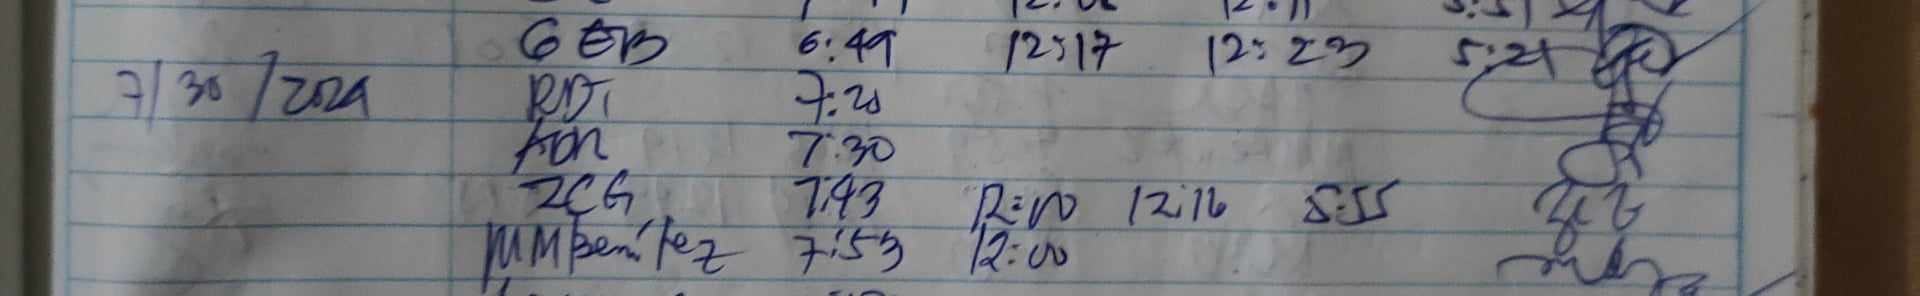 GEB 6:49 12:17 12:23 5:21
7/30/2024 RDJ 7:20
ADR 7:30
ZCG 7:43 12:00 12:16 5:55
MMBenitez 7:53 12:00